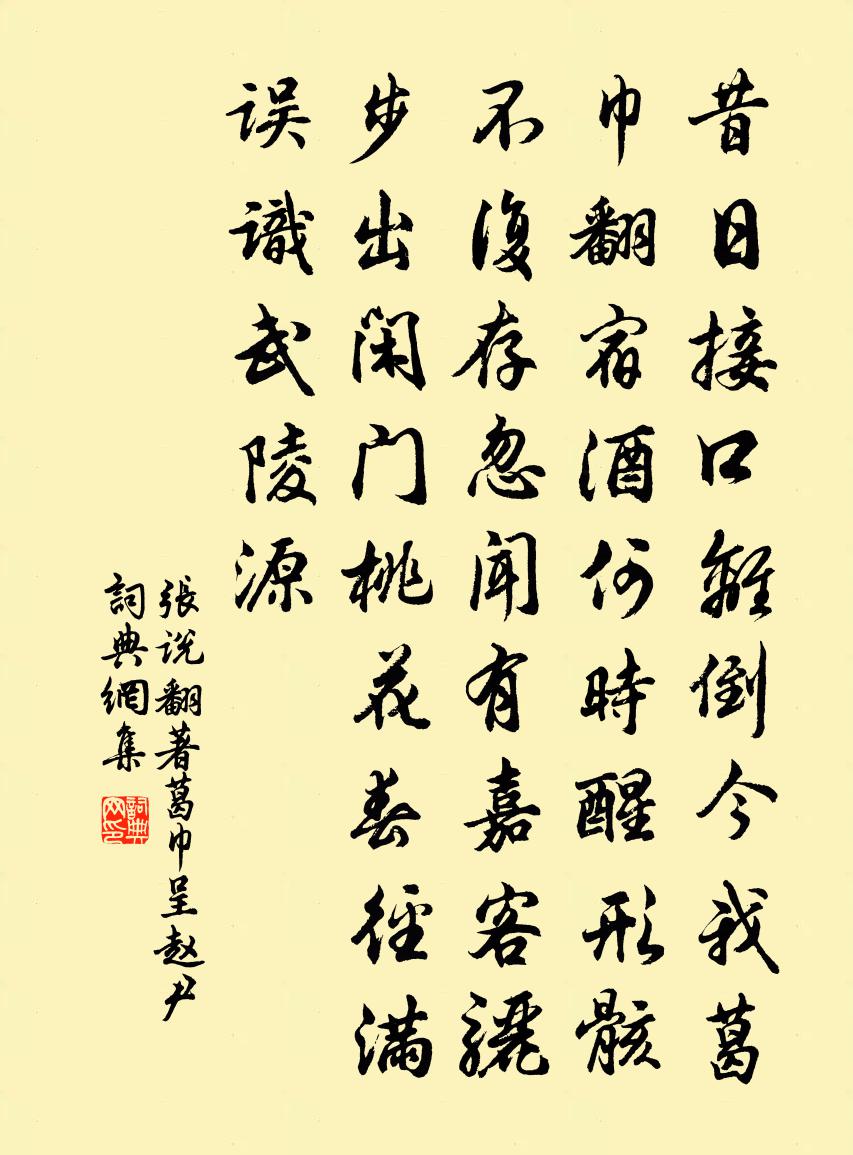 昔日接口離倒今我葛
巾翻宿酒何時醒形骸
不復存忽闻有嘉客驪
步出闲门桃花春徑滿
误識武陵源
張说翻著葛巾呈赵尹
詞典網集
詞典网印